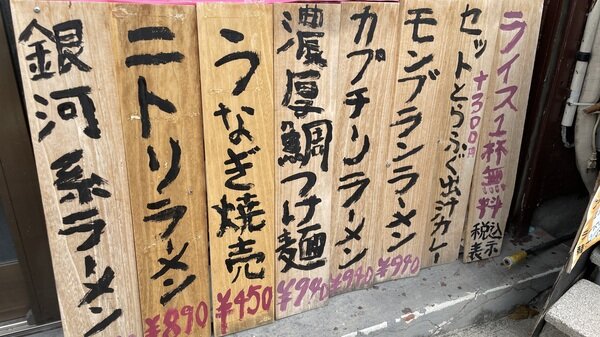 ライス1杯無料
税込
表示
セットとらふぐ出汁カレー
+300円
モンブランラーメン
¥990
カプチーノラーメン
¥990
濃厚鯛つけ麺
¥990
うなぎ焼売
¥450
ニトリラーメン
¥890
銀河系ラーメン